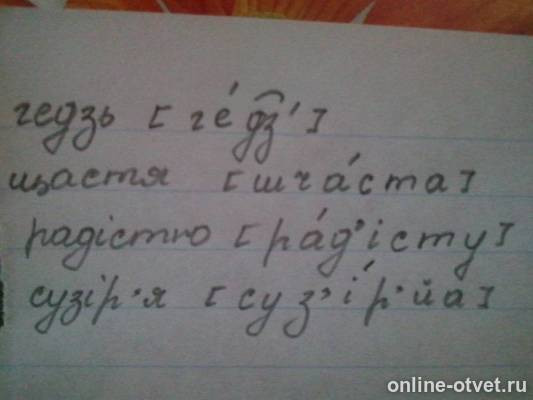 гедзь [ге́дз']
щастя [шча́ста]
радістю [ра́д'істу]
сузір'я [суз'і́р'йа]
online-otvet.ru